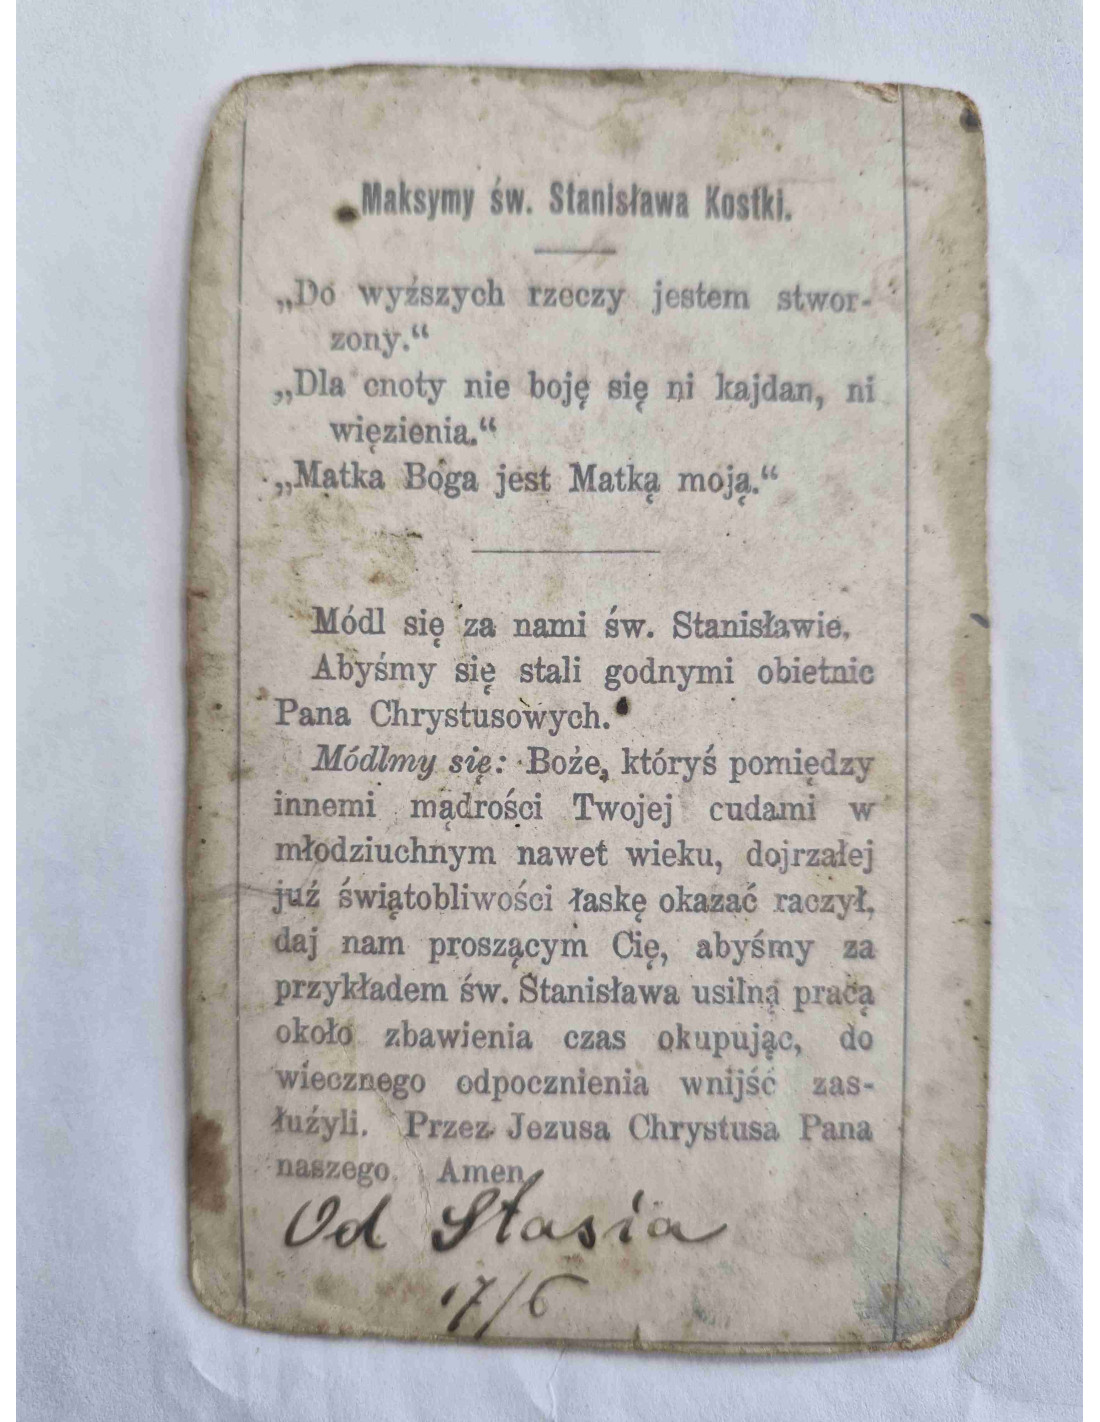 Maksymy św. Stanisława Kostki.
„Do wyższych rzeczy jestem stwor-
zony.“
„Dla cnoty nie boję się ni kajdan, ni
więzienia.“
„Matka Boga jest Matką moją.“
Módl się za nami św. Stanisławie.
Abyśmy się stali godnymi obietnic
Pana Chrystusowych.
Módlmy się: Boże, któryś pomiędzy
innemi mądrości Twojej cudami w
młodziuchnym nawet wieku, dojrzałej
już świątobliwości łaskę okazać raczył,
daj nam proszącym Cię, abyśmy za
przykładem św. Stanisława usilną pracą
około zbawienia czas okupując, do
wiecznego odpocznienia wnijść zas-
łużyli. Przez Jezusa Chrystusa Pana
naszego. Amen.
Od Stasia
17/6